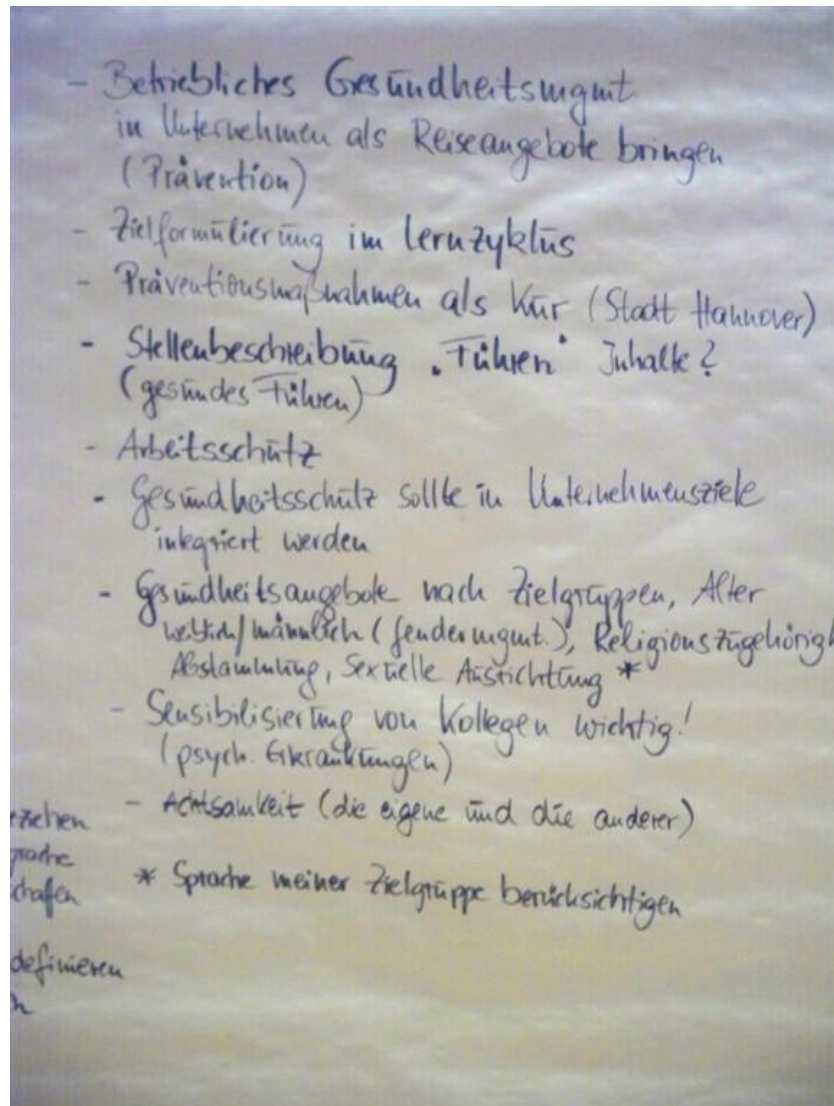 - Betriebliches Gesundheitsmgmt
in Unternehmen als Reiseangebote bringen
(Prävention)
- Zielformulierung im Lernzyklus
- Präventionsmaßnahmen als Kur (Stadt Hannover)
- Stellenbeschreibung "Führen" Inhalte?
(gesundes Führen)
- Arbeitsschutz
- Gesundheitsschutz sollte in Unternehmensziele
integriert werden
- Gesundheitsangebote nach Zielgruppen, Alter
weiblich/männlich (Gendermgmt.), Religionszugehörigk
Abstammung, Sexuelle Ausrichtung *
- Sensibilisierung von Kollegen wichtig!
(psych. Erkrankungen)
- Achtsamkeit (die eigene und die anderer)
* Sprache meiner Zielgruppe berücksichtigen
ziehen
prache
chaffen
definieren